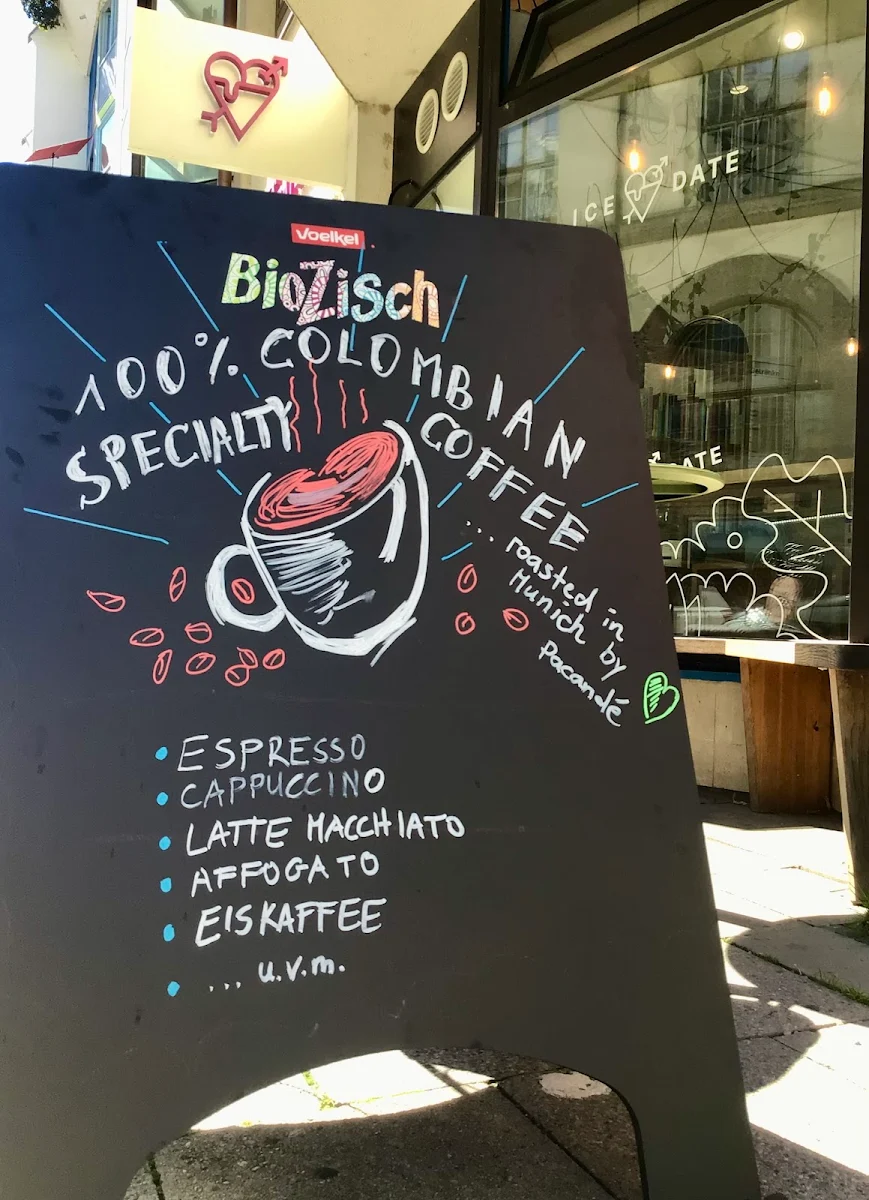 ICE DATE
DATE
Voelkel
BioZisch
100% COLOMBIAN
SPECIALTY COFFEE
... roasted in
Munich by
Pacandé
• ESPRESSO
• CAPPUCCINO
• LATTE MACCHIATO
• AFFOGATO
• EISKAFFEE
• ... u.v.m.